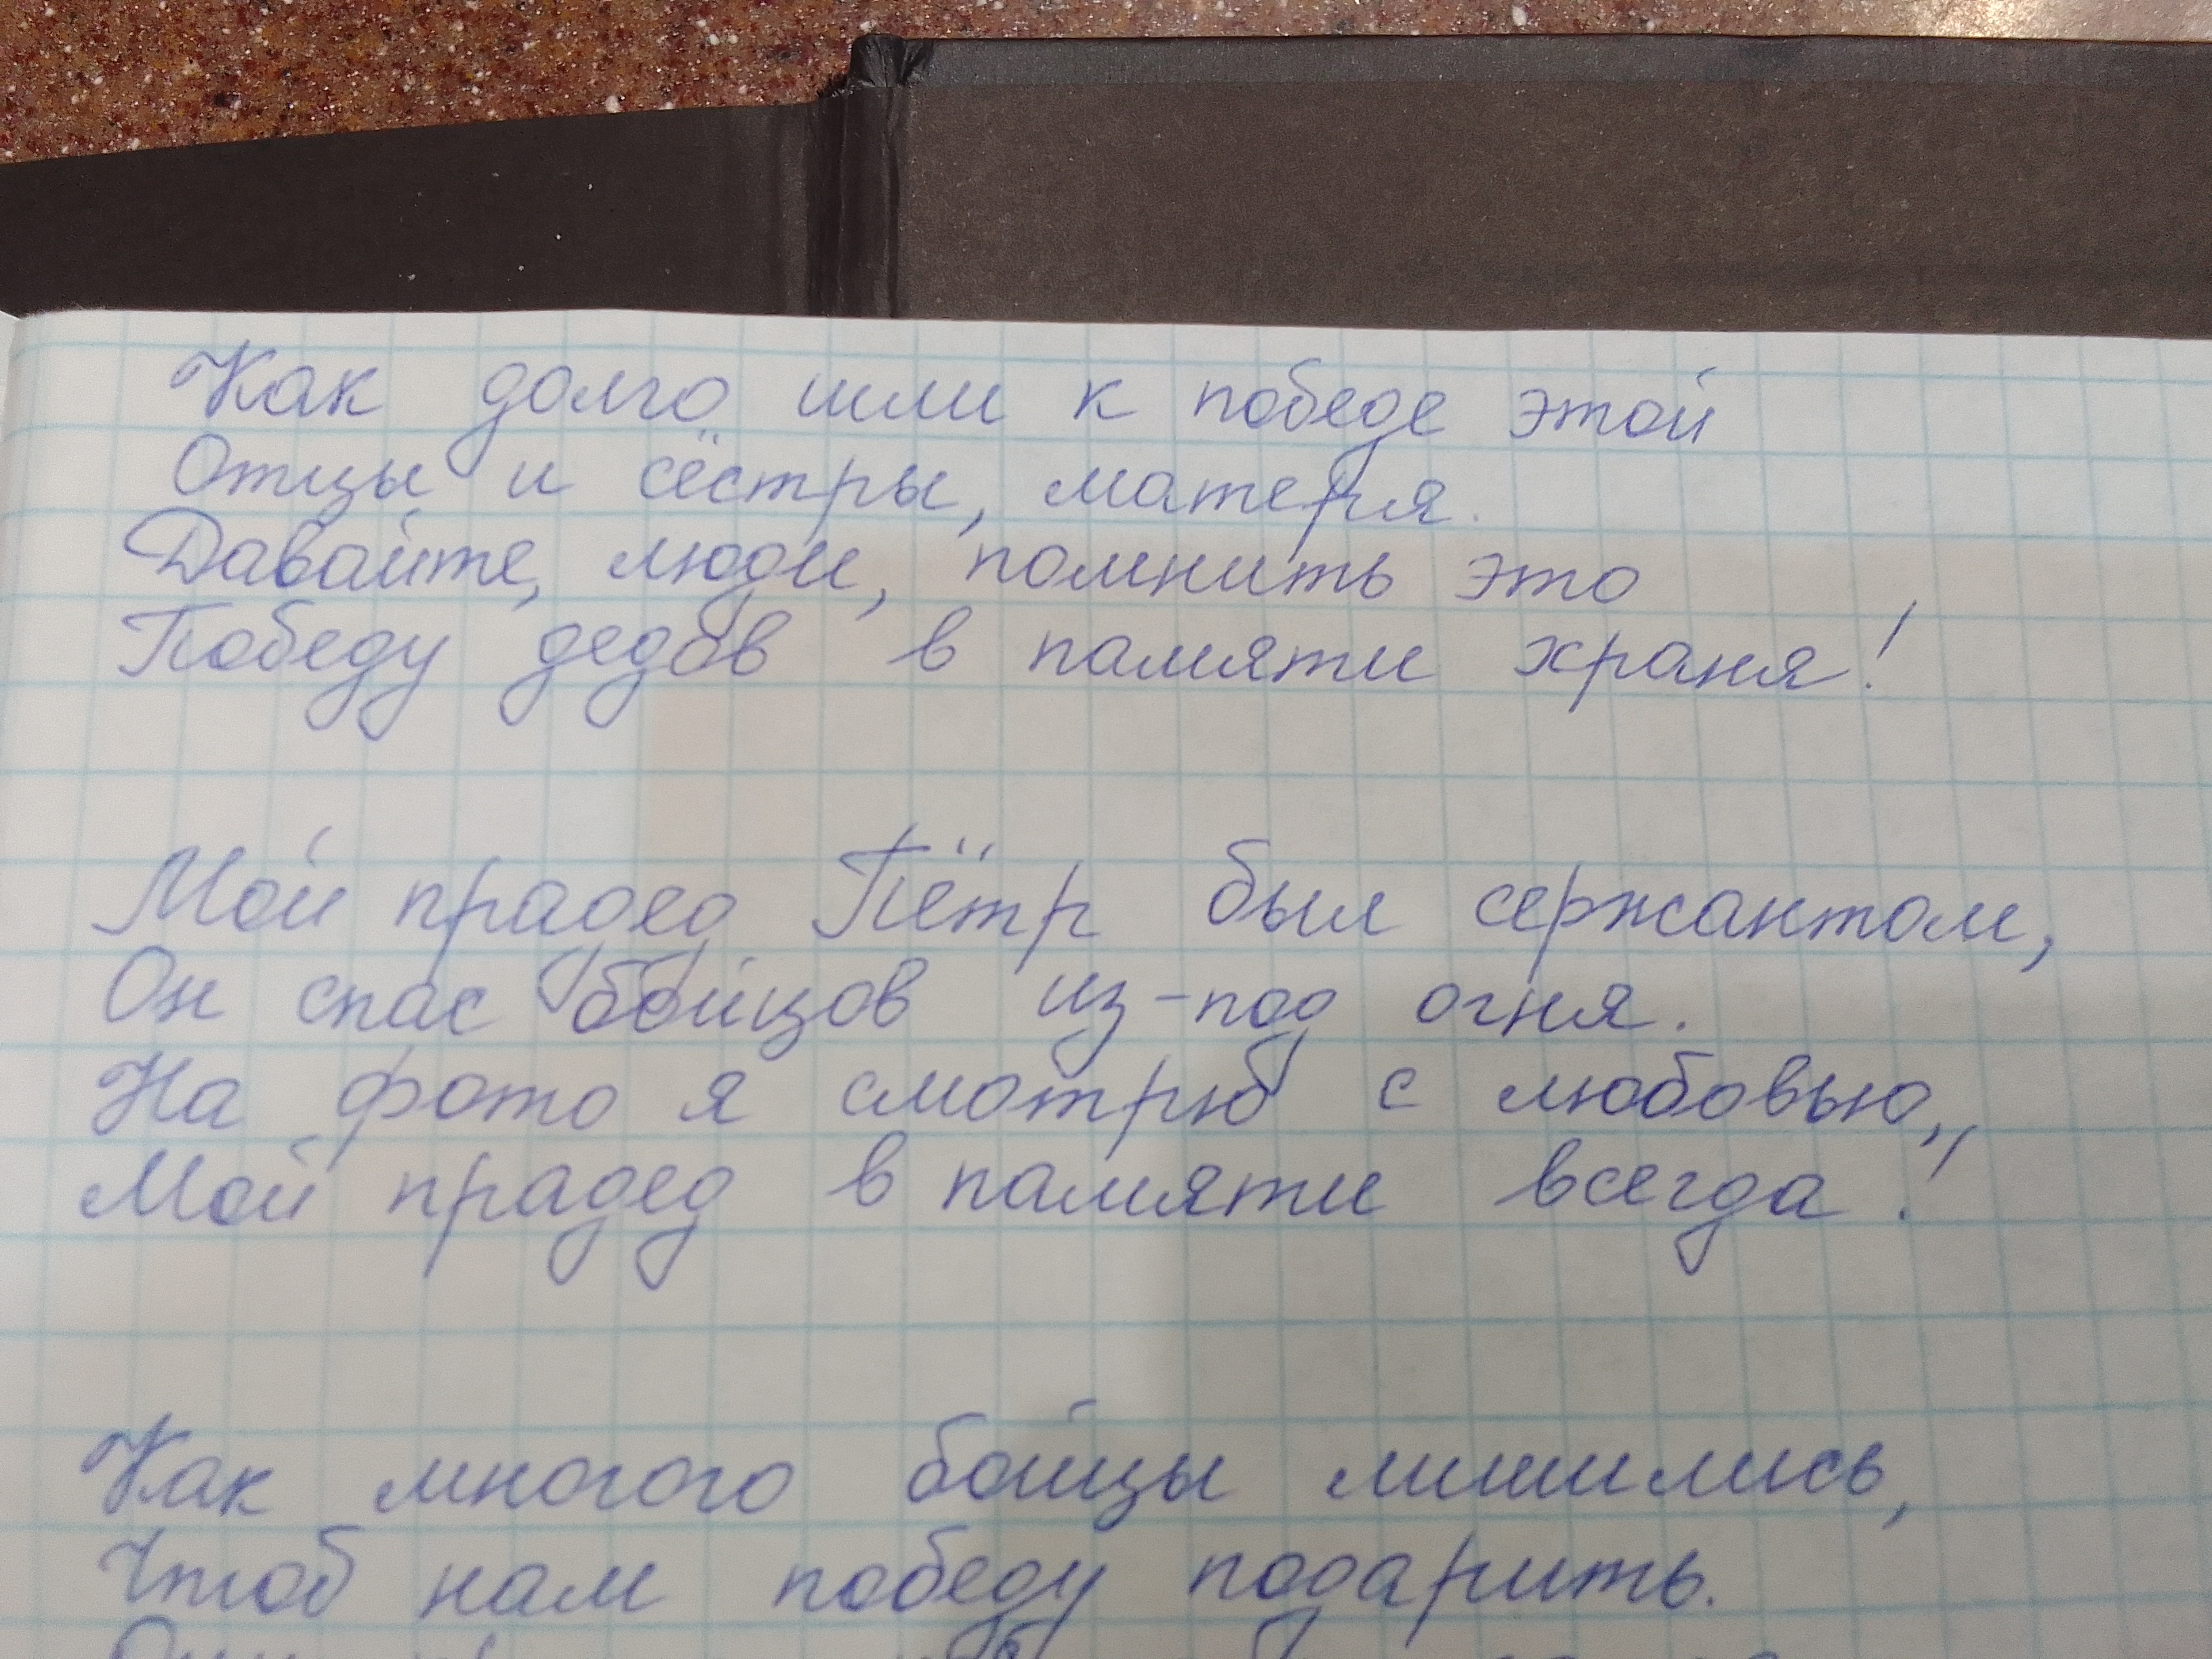 Как долго шли к победе этой
Отцы и сёстры, матеря.
Давайте, люди, помнить это
Победу дедов в памяти храня!
Мой прадед Пётр был сержантом,
Он спас бойцов из-под огня.
На фото я смотрю с любовью,
Мой прадед в памяти всегда!
Как много бойцы лишились,
Чтоб нам победу подарить.